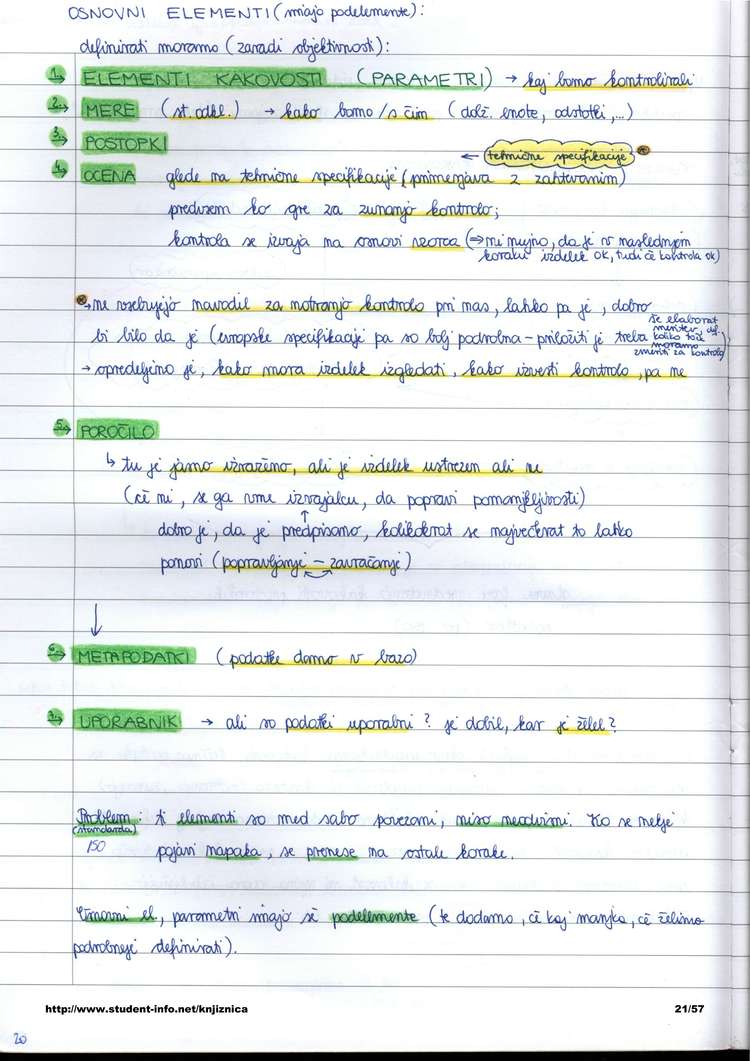 OSNOVNI ELEMENTI (imajo podelemente):
definirati moramo (zaradi objektivnosti):
1. ELEMENTI KAKOVOSTI (PARAMETRI) → kaj bomo kontrolirali
2. MERE (st. odkl.) → kako bomo / s čim (dolž. enote, odstotki,...)
3. POSTOPKI
← tehnične specifikacije
4. OCENA glede na tehnične specifikacije (primerjava z zahtevanim)
predvsem ko gre za zunanjo kontrolo;
kontrola se izvaja na osnovi vzorca (⇒ ni nujno, da je v naslednjem
koraku izdelek OK, tudi če kontrola ok)
→ ne vsebujejo navodil za notranjo kontrolo pri nas, lahko pa je, dobro
bi bilo da je (evropske specifikacije pa so bolj podrobne - priložiti je treba
še elaborat
meritev,
koliko točk
moramo
zmeriti za kontrolo)
→ opredeljeno je, kako mora izdelek izgledati, kako izvesti kontrolo, pa ne
5. POROČILO
↳ tu je jasno izraženo, ali je izdelek ustrezen ali ne
(če ni, se ga vrne izvajalcu, da popravi pomanjkljivosti)
dobro je, da je predpisano, kolikokrat se največkrat to lahko
ponovi (popravljanje - zavračanje)
6. METAPODATKI (podatke damo v bazo)
7. UPORABNIK → ali so podatki uporabni? je dobil, kar je želel?
Problem: ti elementi so med sabo povezani, niso neodvisni. Ko se nekje
(standarda)
ISO pojavi napaka, se prenese na ostale korake.
Osnovni el., parametri imajo še podelemente (te dodamo, če kaj manjka, če želimo
podrobneje definirati).
http://www.student-info.net/knjiznica
21/57
20